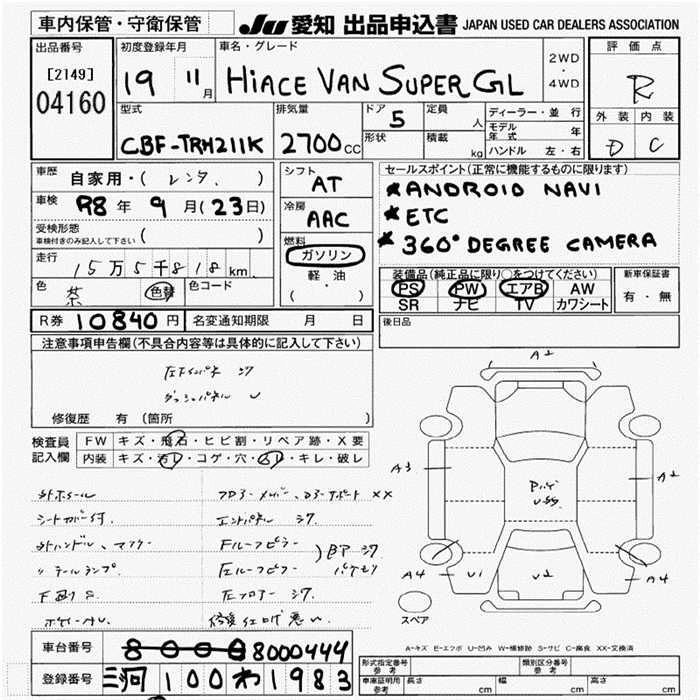 車内保管・守衛保管
JU 愛知 出品申込書 JAPAN USED CAR DEALERS ASSOCIATION
出品番号
[2149]
04160
初度登録年月
19 11月
車名・グレード
HIACE VAN SUPER GL
2WD
・
4WD
評価点
R
外装 内装
D C
型式
CBF-TRH211K
排気量
2700CC
ドア
5
形状
定員
人
積載
kg
ディーラー・並行
モデル年式 年
ハンドル 左・右
車歴
自家用・( レンタ. )
車検 R8年 9月(23日)
受検形態
車検付きのみ記入して下さい ( )
走行
15万5千818km
色
茶 色替
色コード
シフト
AT
冷房
AAC
燃料
ガソリン
軽・油
( )
セールスポイント(正常に機能するものに限ります)
★ANDROID NAVI
★ETC
★360° DEGREE CAMERA
装備品(純正品に限り○をつけてください)
PS PW エアB AW
SR ナビ TV カワシート
新車保証書
有・無
R券 10840円 名変通知期限 月 日
後日品
注意事項申告欄(不具合内容等は具体的に記入して下さい)
修復歴 有 (箇所 )
検査員
記入欄
FW キズ・飛石・ヒビ割・リペア跡・X要
内装 キズ・汚れ・コゲ・穴・・キレ・破レ
外ホール
シートカバー付.
外ハンドル、
テールランプ.
エンドパネル
Fルーフピラー
左ルーフピラー
左フロアー
A2
A3
A2
A4
U1
A4
スペア
A-キズ E-エクボ U-凹み W-補修跡 S-サビ C-腐食 XX-交換済
車台番号 8000 8000444
登録番号 三河 100 わ 1983
形式指定番号
参考
類別区分番号
参考
車庫証明用
参考
長さ cm 幅 cm 高さ cm